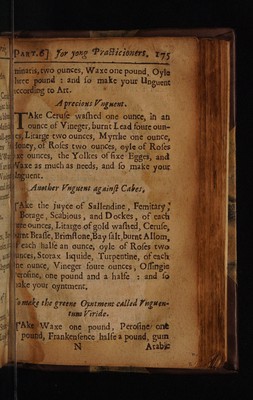 [PART.6] for yong Practicioners. 175
minaris, two ounces, Waxe one pound, Oyle
here pound : and so make your Unguent
according to Art.
A precious Vnguent.
TAke Ceruse washed one ounce, in an
ounce of Vineger, burnt Lead foure oun-
ces, Litarge two ounces, Myrrhe one ounce,
honey, of Roses two ounces, oyle of Roses
six ounces, the Yolkes of sixe Egges, and
Waxe as much as needs, and so make your
Unguent.
Another Vnguent against Cakes,
TAke the juyce of Sallendine, Femitary,
Borage, Scabious, and Dockes, of each
ounces, Litarge of gold washed, Ceruse,
burnt Brasse, Brimstone, Bay salt, burnt Allom,
of each halfe an ounce, oyle of Roses two
ounces, Storax liquide, Turpentine, of each
one ounce, Vineger foure ounces,
Perosine, one pound and a halfe : and so
make your oyntment.
To make the greene Oyntment called Vnguen-
tum Viride.
TAke Waxe one pound, Perosine one
pound, Frankensence halfe a pound, gum
N Arabic